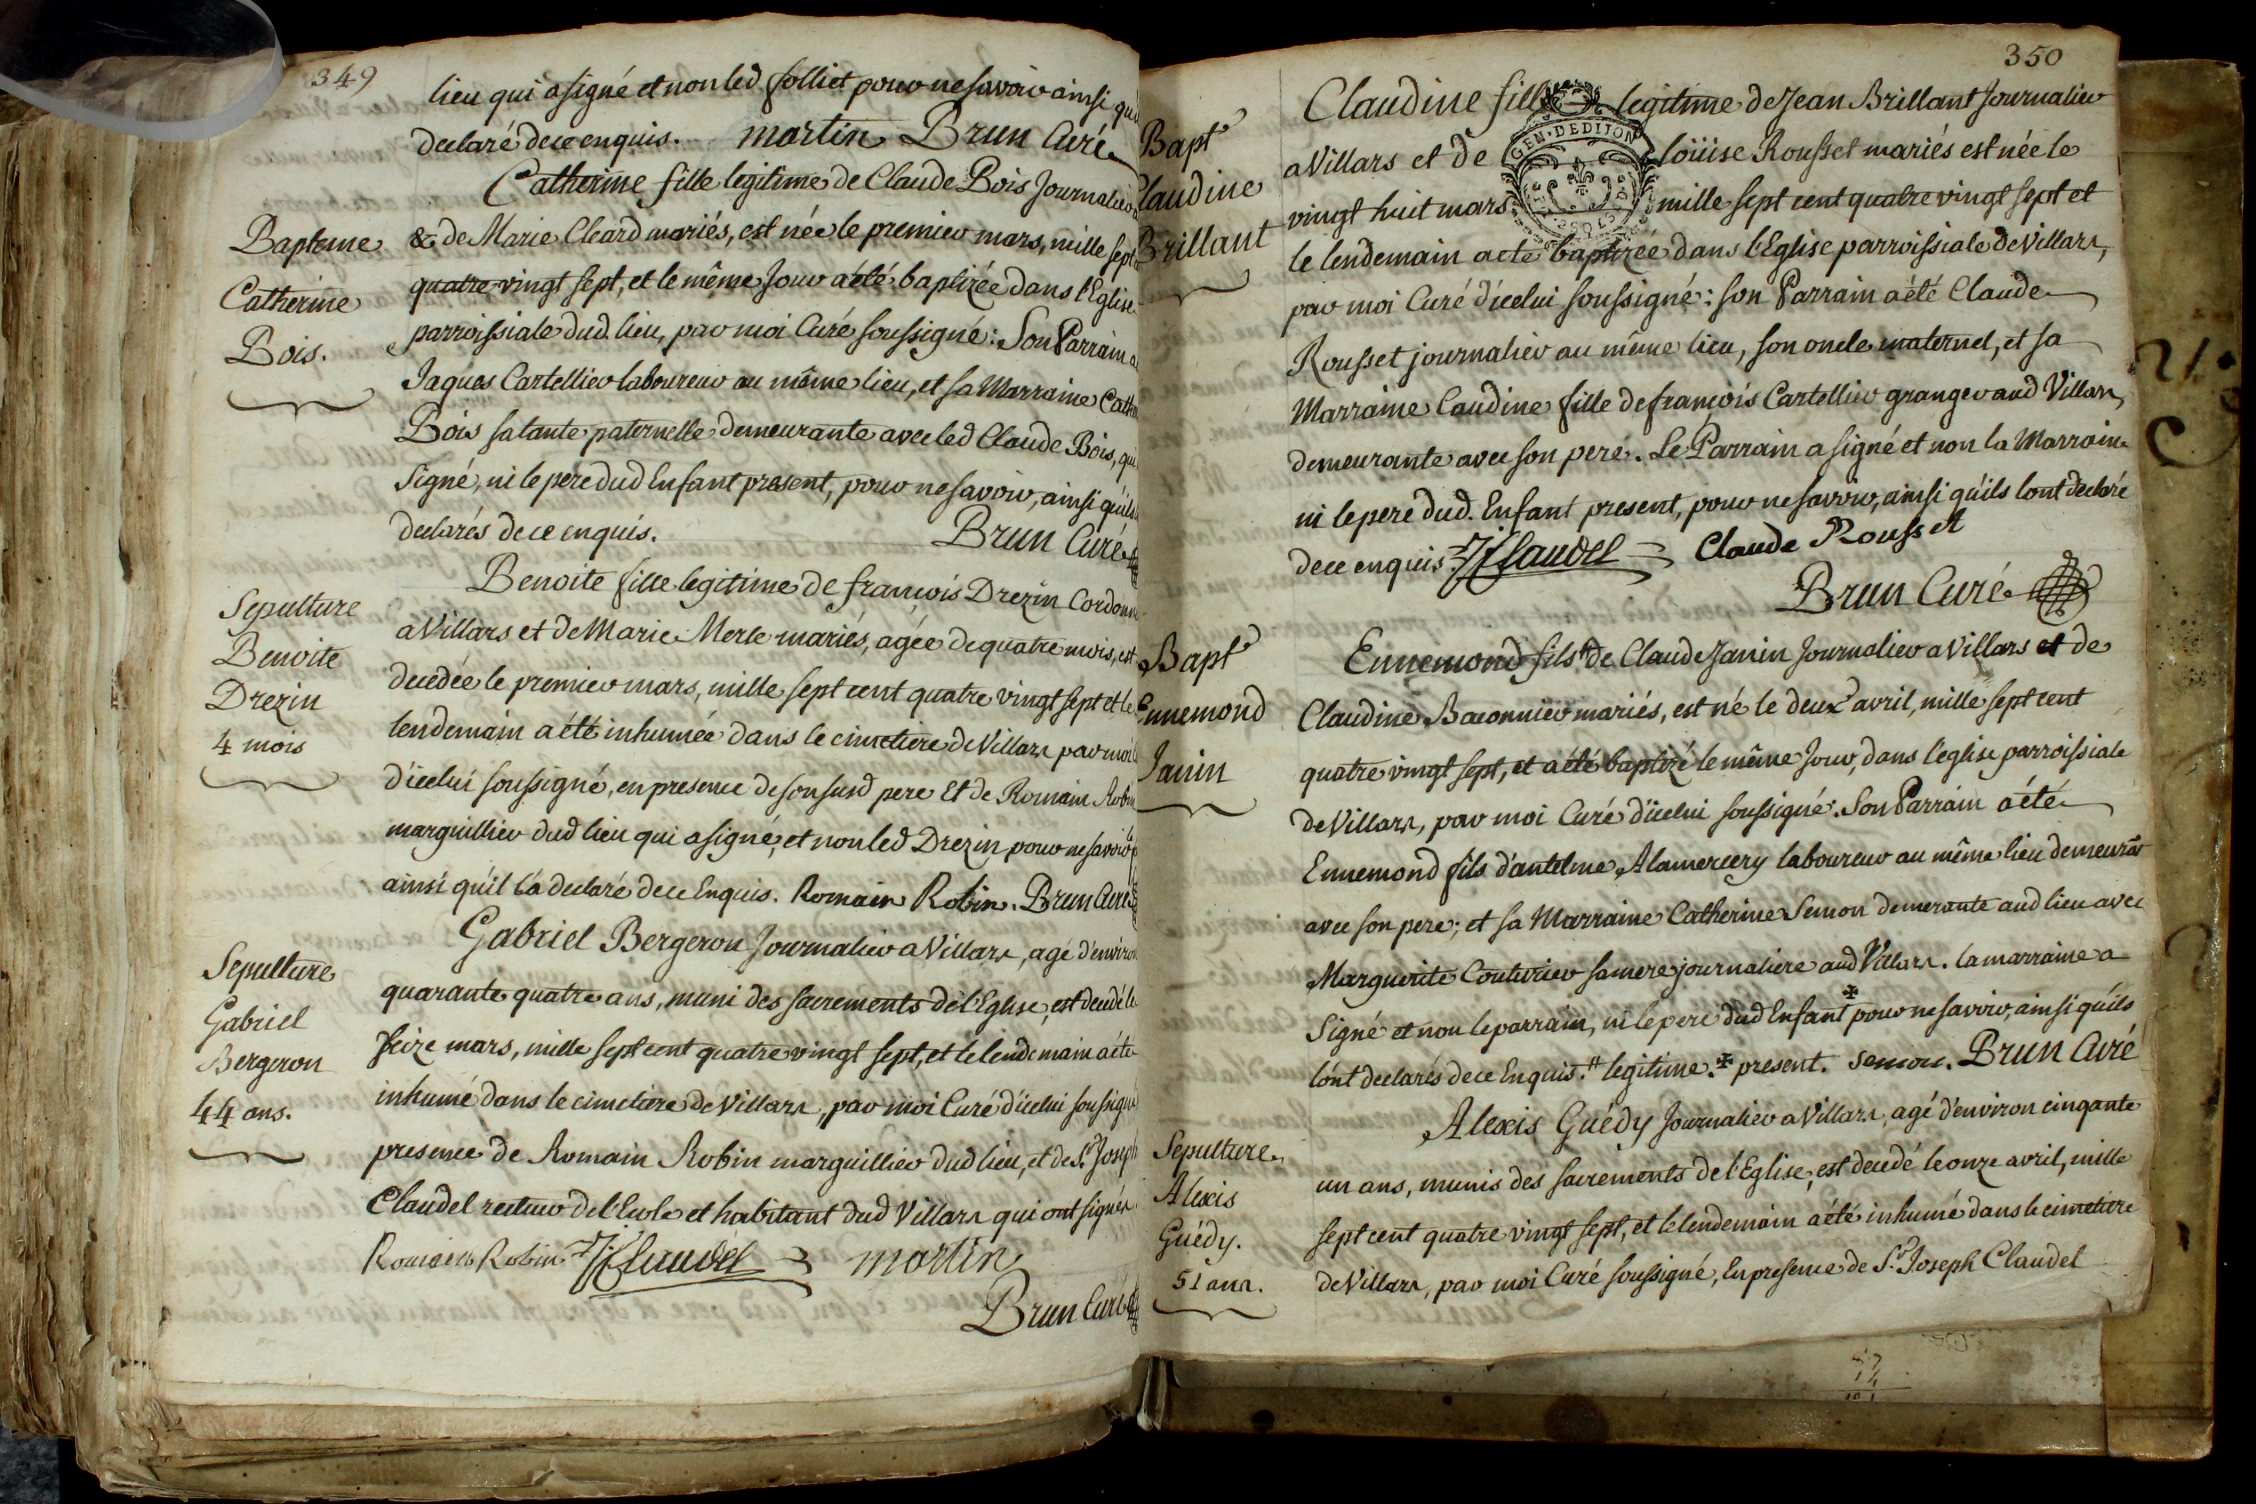 349
lieu qui a signé et non led folliet pour ne savoir ainsi
declaré de ce enquis. martin Brun Curé
Catherine fille legitime de Claude Bois Journalier
Bapteme
Catherine
Bois.
& de Marie Cleard mariés, est née le premier mars, mille sept
quatre vingt sept, et le même Jour a été baptizée dans l'Eglise
parroissiale dud. lieu, par moi Curé soussigné : Son Parrain a
Jaques Cartellier laboureur au même lieu, et sa Marraine Cath
Bois sa tante paternelle demeurante avec led Claude Bois, qui
signé, ni le père dud Enfant present, pour ne savoir, ainsi qu'ils
declarés de ce enquis. Brun Curé
Sepulture
Benoite
Drezin
4 mois
Benoite fille legitime de françois Drezin Cordonn
a Villars et de Marie Merle mariés, agée de quatre mois, est
decedée le premier mars, mille sept cent quatre vingt sept et le
lendemain a été inhumée dans le cimetiere de Villars par moi
d'icelui soussigné, en presence de son susd pere Et de Romain Robin
marguillier dud lieu qui a signé, et non led Drezin pour ne savoir
ainsi qu'il l'a declaré de ce Enquis. Romain Robin. Brun Curé
Sepulture
Gabriel
Bergeron
44 ans.
Gabriel Bergeron Journalier a Villars, agé d'environ
quarante quatre ans, muni des sacrements de l'Eglise, est decedé le
seize mars, mille sept cent quatre vingt sept, et le lendemain a été
inhumé dans le cimetiere de Villars, par moi Curé d'icelui soussigné
presence de Romain Robin marguillier dud lieu, et de Sr. Joseph
Claudel recteur de l'Ecole et habitant dud Villars qui ont signés
Romain Robin JClaudel martin
Brun Curé
350
Bapt
Claudine
Brillant
GEN · DEDITON
Claudine fille legitime de Jean Brillant Journalier
a Villars et de loüise Rousset mariés est née le
vingt huit mars mille sept cent quatre vingt sept et
le lendemain a eté baptizée dans l'Eglise parroissiale de Villars,
par moi Curé d'icelui soussigné : son Parrain a été Claude
Rousset journalier au même lieu, son oncle maternel, et sa
Marraine Caudine fille de françois Cartellier granger aud Villars,
demeurante avec son pere. Le Parrain a signé et non la Marraine
ni le pere dud. Enfant present, pour ne savoir, ainsi qu'ils l'ont declaré
de ce enquis JClaudel Claude Rousset
Brun Curé
Bapt
Ennemond
Janin
Ennemond fils " de Claude Janin Journalier a Villars et de
Claudine Baconnier mariés, est né le deux avril, mille sept cent
quatre vingt sept, et a été baptizé le même Jour, dans l'eglise parroissiale
de Villars, par moi Curé d'icelui soussigné. Son Parrain a été
Ennemond fils d'antelme Alamercery laboureur au même lieu demeurãt
avec son pere ; et sa Marraine Catherine Semon demerante aud lieu avec
Marguerite Couturier sa mere journaliere aud Villars. la marraine a
Signé et non le parrain, ni le pere dud Enfant ✠ pour ne savoir, ainsi qu'ils
l'ont declarés de ce Enquis. " legitime. ✠ present. semon. Brun Curé
Sepulture
Alexis
Guédy.
51 ans.
Alexis Guédy Journalier a Villars, agé d'environ cinqante
un ans, munis des sacrements de l'Eglise, est decedé le onze avril, mille
sept cent quatre vingt sept, et le lendemain a été inhumé dans le cimetiere
de Villars, par moi Curé soussigné, En presence de Sr. Joseph Claudel